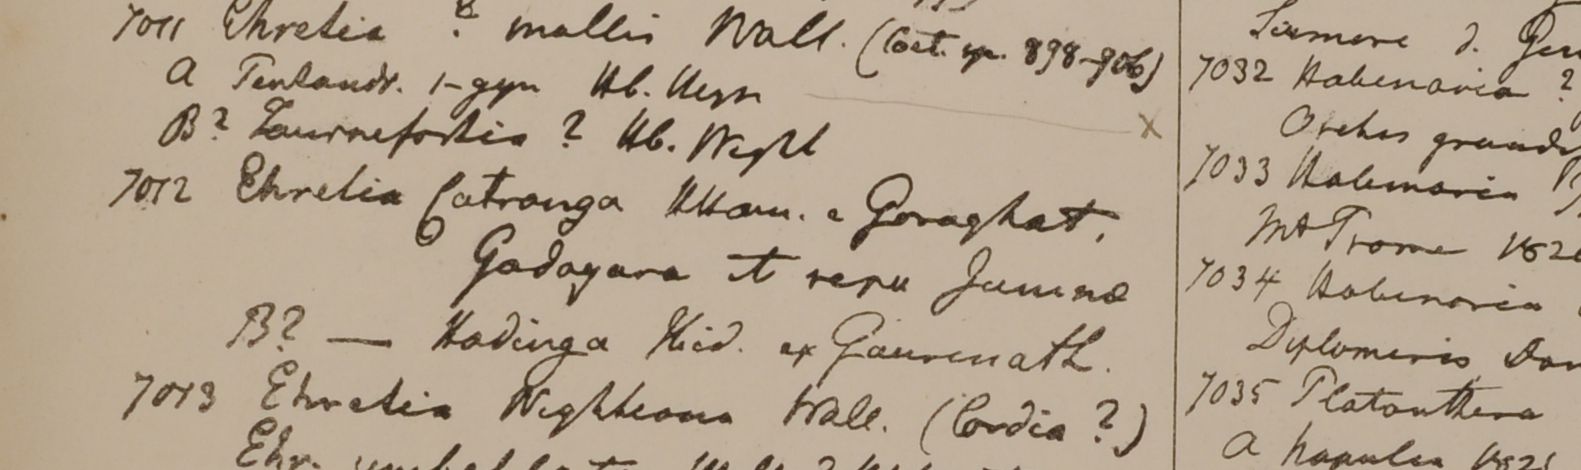 7011 Ehretia ? mollis Wall. (Cat. sp. 898-906)
A Pentandr. 1-gyn Hb. Heyn
B? Tournefortia ? Hb. Wight
7012 Ehretia Catronga HHam. e Goraghat,
Gadagara et ripa Jumnae
B? — Hadinga Hid. ex Gaurinath.
7013 Ehretia Wightiana Wall. (Cordia ?)
Ehr.
7032 Habenaria ?
Orchis
7033 Habenaria
Mt Prome 182
7034 Habenaria
Diplomeris
7035 Platanthera
A Napalia 1821